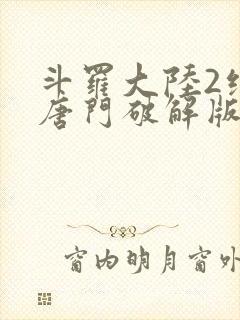 斗羅大陸2
唐門破解版
窗内明月窗外